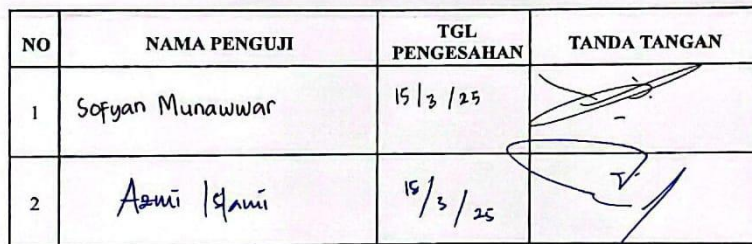 NO NAMA PENGUJI TGL PENGESAHAN TANDA TANGAN
1 Sofyan Munawwar 15/3/25
2 Azmi Islami 15/3/25